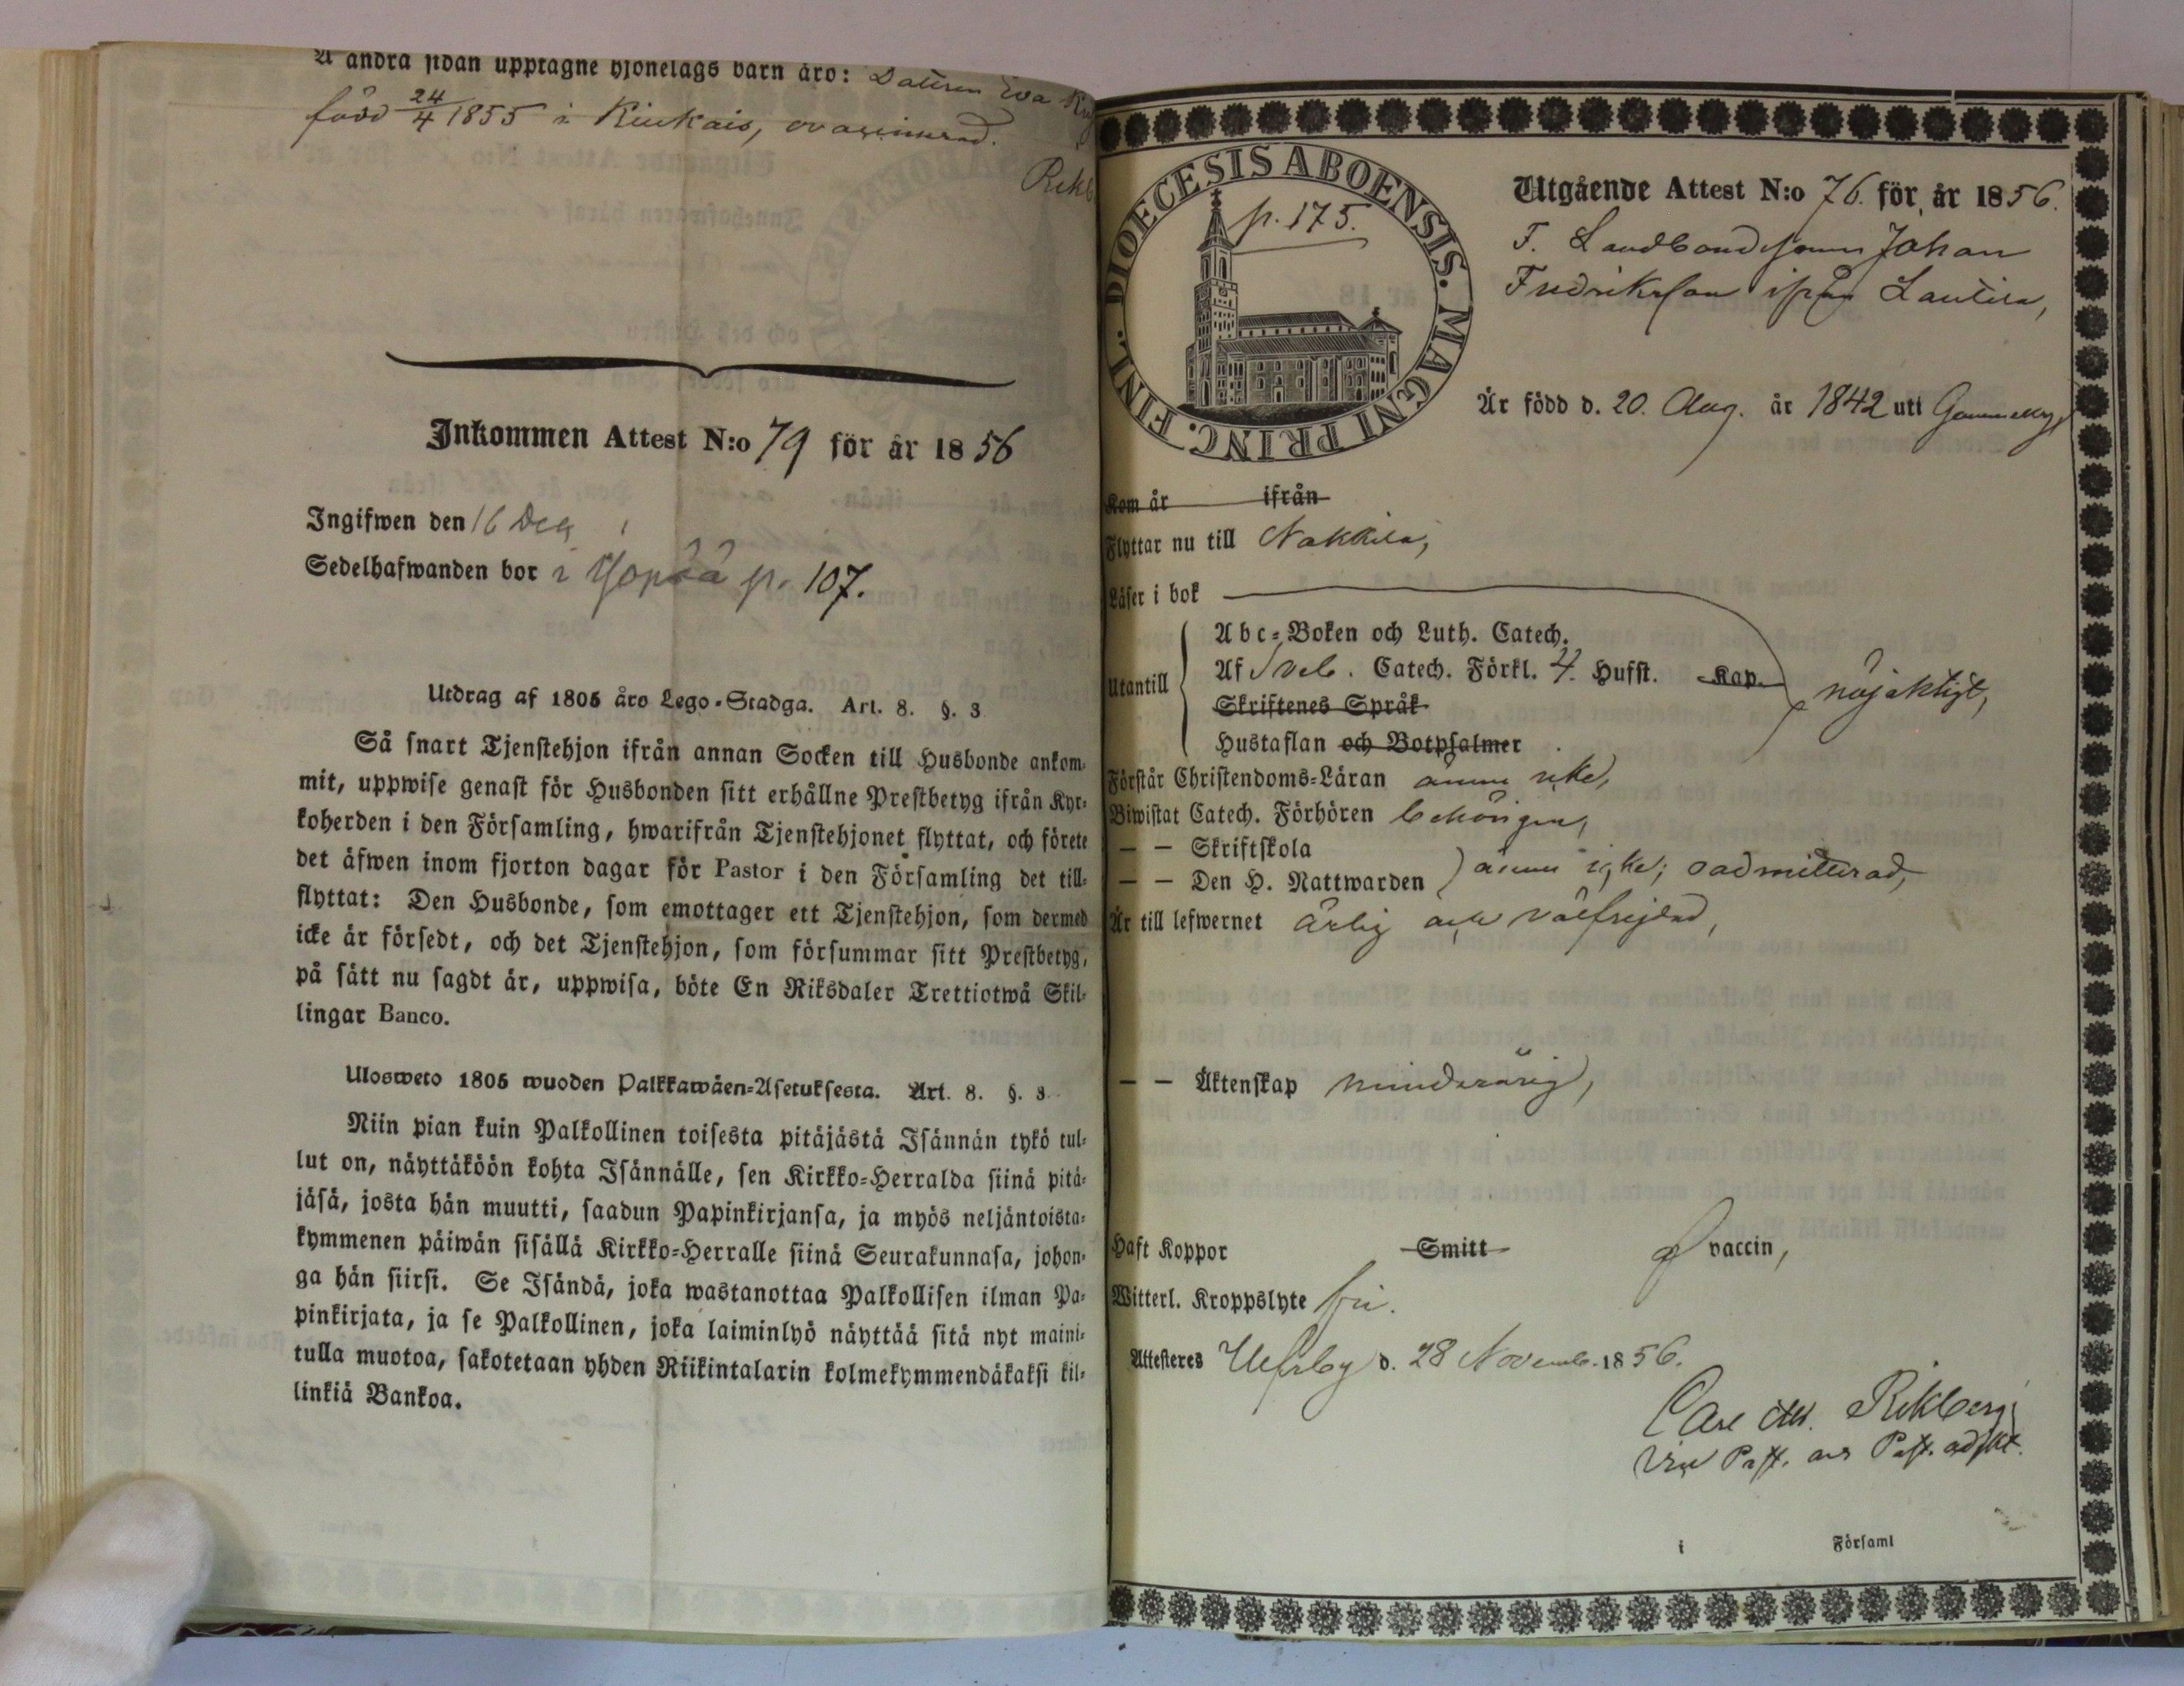 A andra sidan upptagne hjonelags barn äro: Dottren Eva
född 24/4 1855 i Kiukais, ovaccinerad.
Inkommen Attest N:o 79 för år 1856
Ingifwen den 16 Dec
Sedelhafwanden bor i p. 107.
Utdrag af 1805 års Lego-Stadga. Art. 8. §. 3
Så snart Tjenstehjon ifrån annan Socken till Husbonde ankom-
mit, uppwise genast för Husbonden sitt erhållne Prestbetyg ifrån Kyr-
koherden i den Församling, hwarifrån Tjenstehjonet flyttat, och förete
det äfwen inom fjorton dagar för Pastor i den Församling det till-
flyttat: Den Husbonde, som emottager ett Tjenstehjon, som dermed
icke är försedt, och det Tjenstehjon, som försummar sitt Prestbetyg,
på sätt nu sagdt är, uppwisa, böte En Riksdaler Trettiotwå Skil-
lingar Banco.
Ulosweto 1805 wuoden Palkkawäen-Asetuksesta. Art. 8. §. 3
Niin pian kuin Palkollinen toisesta pitäjästä Isännän tykö tul-
lut on, näyttäköön kohta Isännälle, sen Kirkko-Herralda siinä pitä-
jäsä, josta hän muutti, saadun Papinkirjansa, ja myös neljäntoista-
kymmenen päiwän sisällä Kirkko-Herralle siinä Seurakunnasa, johon-
ga hän siirsi. Se Isändä, joka wastanottaa Palkollisen ilman Pa-
pinkirjata, ja se Palkollinen, joka laiminlyö näyttää sitä nyt maini-
tulla muotoa, sakotetaan yhden Riikintalarin kolmekymmendäkaksi kil-
linkiä Bankoa.
DIOECESIS ABOENSIS. MAGNI PRINC. FINL.
p. 175.
Utgående Attest N:o 76. för år 1856.
F. Landbondesonen Johan
Fredriksson ifrån Lautila,
Är född d. 20. Aug. år 1842 uti
Kom år ifrån
Flyttar nu till Nakkila,
Läser i bok
Utantill
Abc-Boken och Luth. Catech.
Af Sveb. Catech. Förkl. 4. Hufst. Kap.
Skriftenes Språk
Hustaflan och Botpsalmer
nöjaktigt,
Förstår Christendoms-Läran ännu icke,
Biwistat Catech. Förhören behörigen,
— — Skriftskola
— — Den H. Nattwarden ännu icke; oadmitterad,
Är till lefwernet ärlig och välfrejdad,
— — Äktenskap minderårig,
Haft Koppor Smitt af vaccin,
Witterl. Kroppslyte fri.
Attesteres Ulfsby d. 28 Novemb. 1856.
Carl Rikberg
Vice Past. Past. adjkt.
i Församl